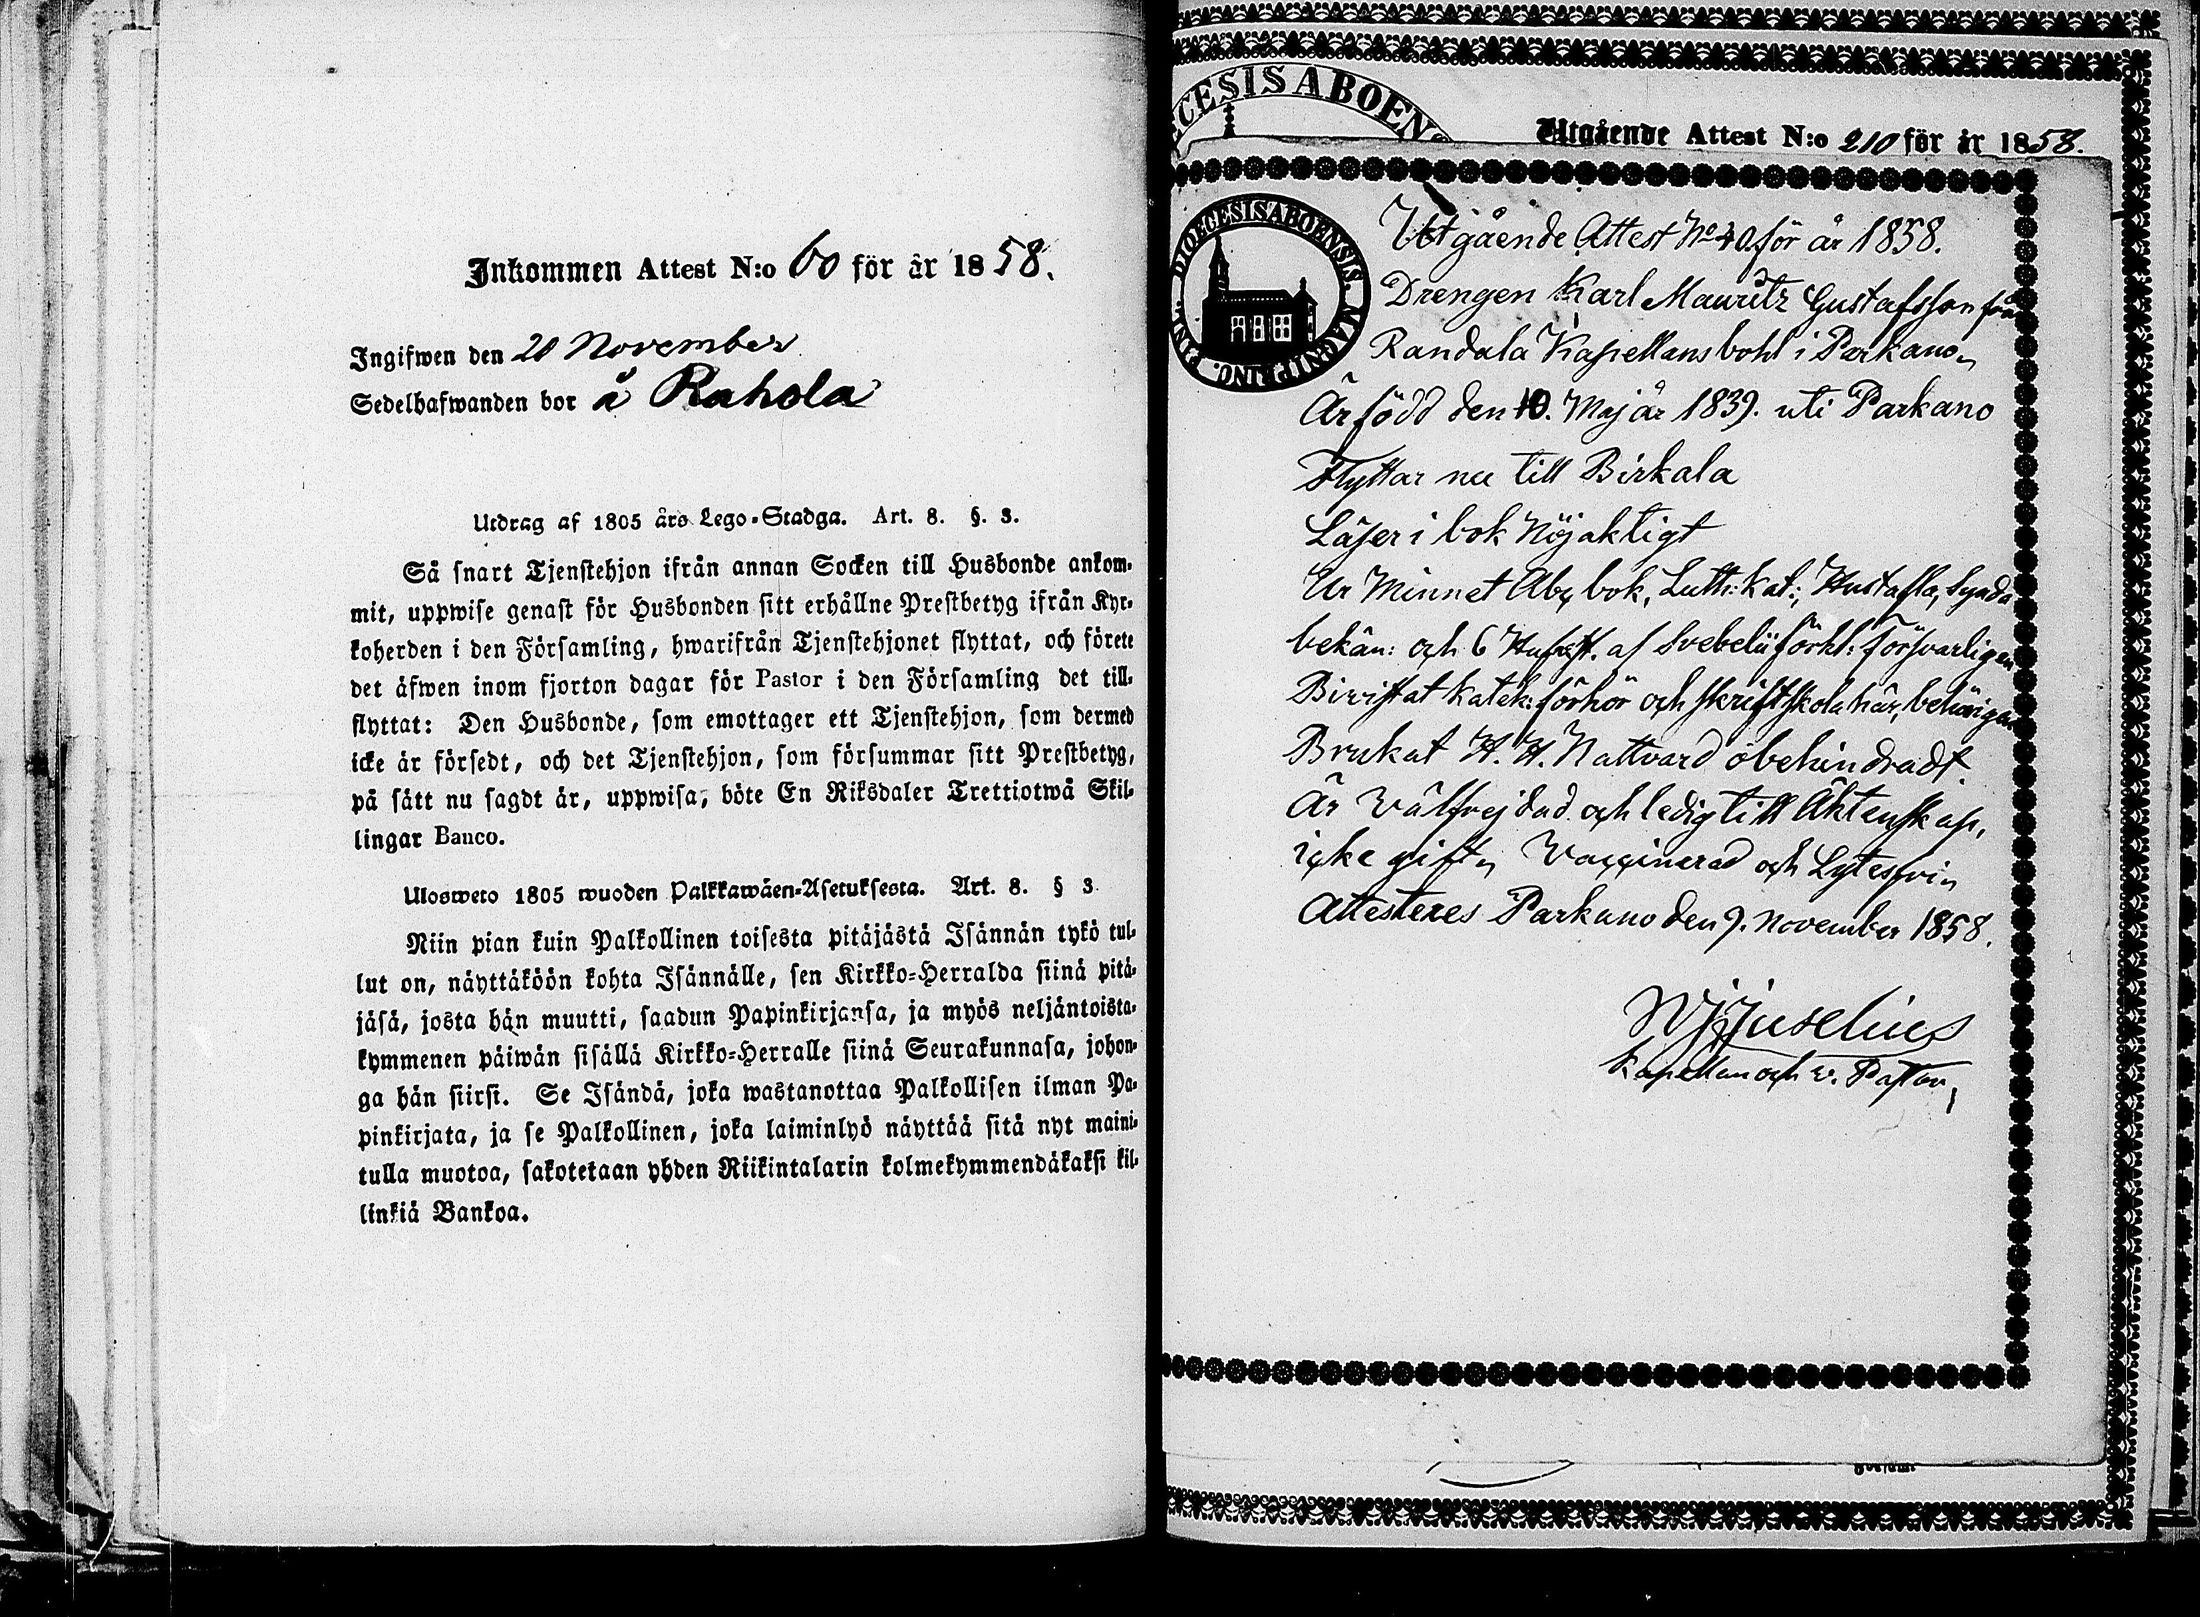 Inkommen Attest N:o 60 för år 1858.
Ingifwen den 20 November
Sedelhafwanden bor å Rahola
Utdrag af 1805 års Lego-Stadga. Art. 8. §. 3.
Så snart Tjenstehjon ifrån annan Socken till Husbonde ankom-
mit, uppwise genast för Husbonden sitt erhållne Prestbetyg ifrån Kyr-
koherden i den Församling, hwarifrån Tjenstehjonet flyttat, och förete
det äfwen inom fjorton dagar för Pastor i den Församling det till-
flyttat: Den Husbonde, som emottager ett Tjenstehjon, som dermed
icke är försedt, och det Tjenstehjon, som försummar sitt Prestbetyg,
på sätt nu sagdt är, uppwisa, böte En Riksdaler Trettiotwå Skil-
lingar Banco.
Ulosweto 1805 wuoden Palkkawäen-Asetuksesta. Art. 8. § 3
Niin pian kuin Palkollinen toisesta pitäjästä Isännän tykö tul-
lut on, näyttäköön kohta Isännälle, sen Kirkko-Herralda siinä pitä-
jäsä, josta hän muutti, saadun Papinkirjansa, ja myös neljäntoista-
kymmenen päiwän sisällä Kirkko-Herralle siinä Seurakunnasa, johon-
ga hän siirsi. Se Isändä, joka wastanottaa Palkollisen ilman Pa-
pinkirjata, ja se Palkollinen, joka laiminlyö näyttää sitä nyt maini-
tulla muotoa, sakotetaan yhden Riikintalarin kolmekymmendäkaksi kil-
linkiä Bankoa.
Utgående Attest N:o 210 för år 1858.
DIOECESIS ABOENSIS. MAGNI PRINC.
Utgående Attest No 40 för år 1858.
Drengen Karl Mauritz Gustafsson från
Randala Kapellansbohl i Parkano
Är född den 10. Maj år 1839. uti Parkano
Flyttar nu till Birkala
Läser i bok Nöjaktigt
Ur Minnet Abc bok, Luth: kat:, Hustafla, Synda
bekän: och 6 af Svebelii förkl: försvarligen
Bivistat katek: förhör och skriftskola här, behörigen
Brukat H. H. Nattvard obehindradt.
Är Välfrejdad och ledig till Äktenskap,
icke gift, Vaccinerad och Lytesfri
Attesteres Parkano den 9. November 1858.
WJ Juselius
Kapellan och v. Pastor,